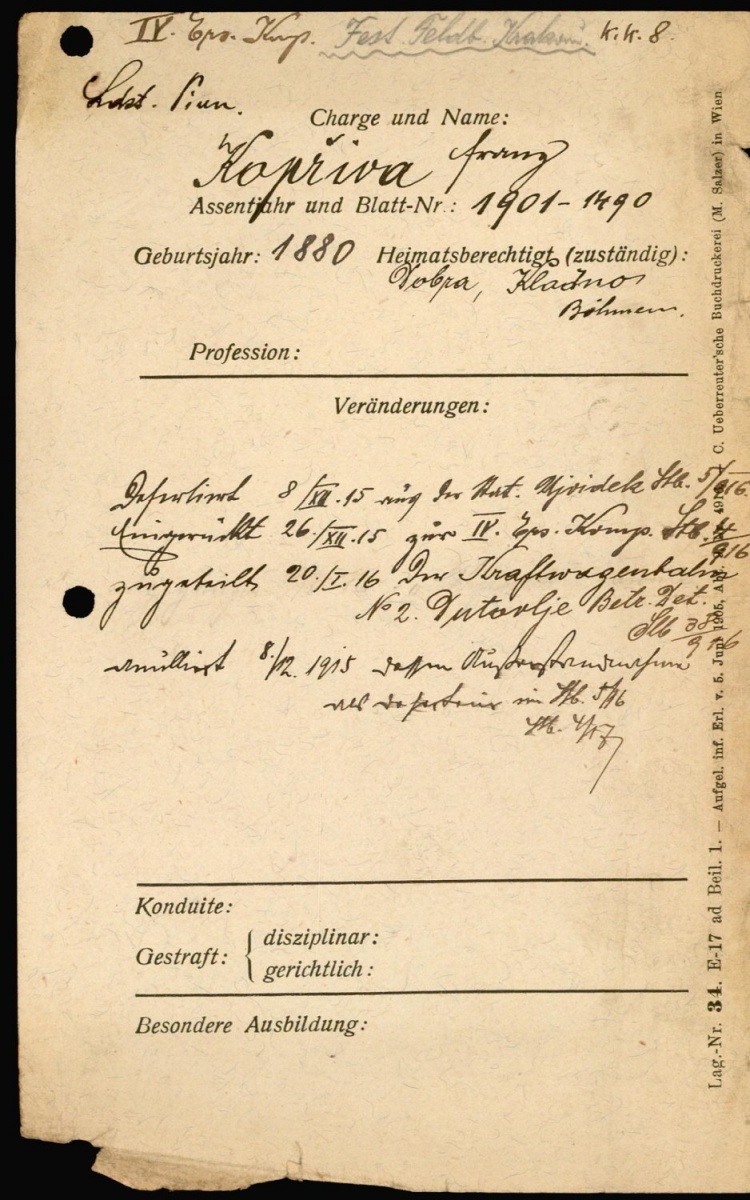 IV. Ers. Komp. Fest. Feldb. Krakau. k.k. 8.
Ldst. Pion.
Charge und Name:
Kopřiva Franz
Assentjahr und Blatt-Nr.: 1901 - 1490
Geburtsjahr: 1880 Heimatsberechtigt (zuständig):
Dobra, Kladno
Böhmen.
Profession:
Veränderungen:
Desertiert 8/XII. 15 aus der Stat. Ujvidek Stb. 5/916.
Eingerückt 26./XII. 15 zur IV. Ers. Komp. Stb. 4/916
zugeteilt 20./I. 16 Der Kraftwagenbahn
No 2. Dutovlje Betr. Det.
Stb 38/916
annulliert 8./12. 1915 dessen
als Deserteur im Stb. 5/16
Stb. 4/17
Konduite:
Gestraft: { disziplinar:
gerichtlich:
Besondere Ausbildung:
Lag.-Nr. 34. E-17 ad Beil. 1. — Aufgel. inf. Erl. v. 5. Juni 1905, C. Ueberreuter'sche Buchdruckerei (M. Salzer) in Wien